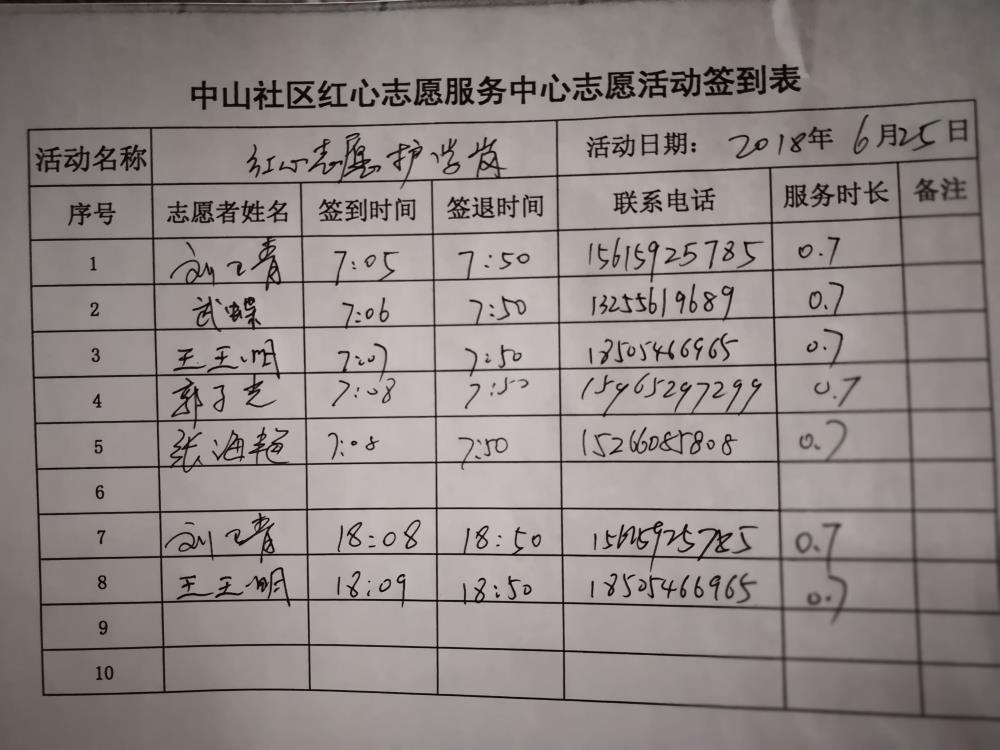 中山社区红心志愿服务中心志愿活动签到表
活动名称 红心志愿护学岗 活动日期： 2018年 6月25日
序号 志愿者姓名 签到时间 签退时间 联系电话 服务时长 备注
1 刘卫青 7:05 7:50 15615925785 0.7
2 武蝶 7:06 7:50 13255619689 0.7
3 王玉明 7:07 7:50 18505466965 0.7
4 郭子光 7:08 7:50 15965297299 0.7
5 张海艳 7:08 7:50 15266085808 0.7
6
7 刘卫青 18:08 18:50 15615925785 0.7
8 王玉明 18:09 18:50 18505466965 0.7
9
10